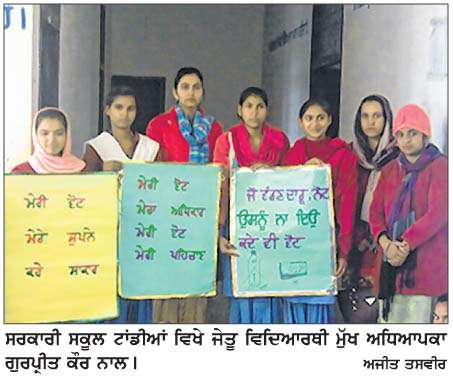 JI
ਮੇਰੀ ਵੋਟ
ਮੇਰੇ ਸੁਪਨੇ
ਕਰੇ ਸਕਾਰ
ਮੇਰੀ ਵੋਟ
ਮੇਰਾ ਅਧਿਕਾਰ
ਮੇਰੀ ਵੋਟ
ਮੇਰੀ ਪਹਿਚਾਣ
ਜੋ ਵੰਡਣ ਦਾਰੂ, ਨੋਟ
ਉਸਨੂੰ ਨਾ ਦਿਉ
ਕਦੇ ਵੀ ਵੋਟ
ਸਰਕਾਰੀ ਸਕੂਲ ਟਾਂਡੀਆਂ ਵਿਖੇ ਜੇਤੂ ਵਿਦਿਆਰਥੀ ਮੁੱਖ ਅਧਿਆਪਕਾ
ਗੁਰਪ੍ਰੀਤ ਕੌਰ ਨਾਲ। ਅਜੀਤ ਤਸਵੀਰ